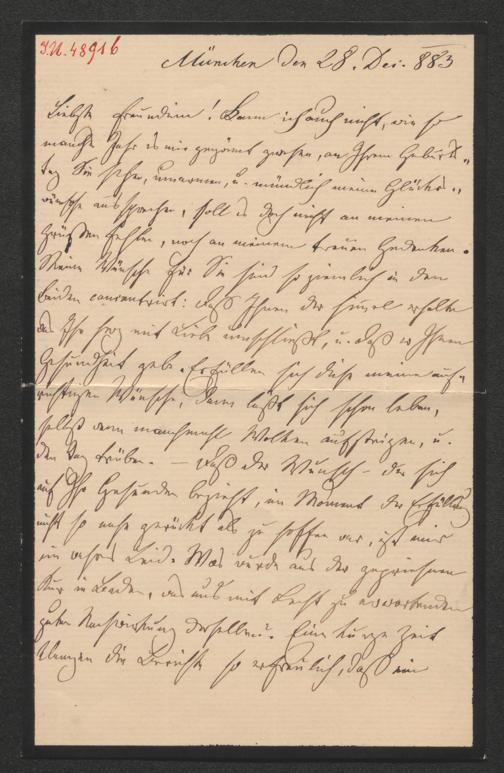 I.N. 48916
München den 28. Dec. 883
Liebste Freundin! Kann ich auch nicht, wie so
manche Jahr es mir gegönnt gewesen, an Ihrem Geburts-
tag Sie sehen, umarmen, u. mündlich meine Glücks-
wünsche aussprechen, soll es doch nicht an meinen
Grüßen fehlen, noch an meinem treuen Gedenken.
Meine Wünsche für Sie sind so ziemlich in den
beiden concentrirt: daß Ihnen der Himmel erhalte
was Ihr Herz mit Liebe umschließt, u. daß er Ihnen
Gesundheit gebe. Erfüllen sich diese meine auf-
richtigen Wünsche, dann läßt sich schon leben,
selbst wenn manchmahl Wolken aufsteigen, u.
den Tag trüben. — Daß der Wunsch – der sich
auf Ihr Gesunden bezieht, im Moment der Erfüllung
nicht so nahe gerückt als zu hoffen war, ist mir
ein wahres Leid. Was wurde aus der gepriesenen
Kur in Baden, was aus mit Recht zu erwartenden
guten Nachwirkung derselben? Eine kurze Zeit
klangen die Berichte so erfreulich, daß ein